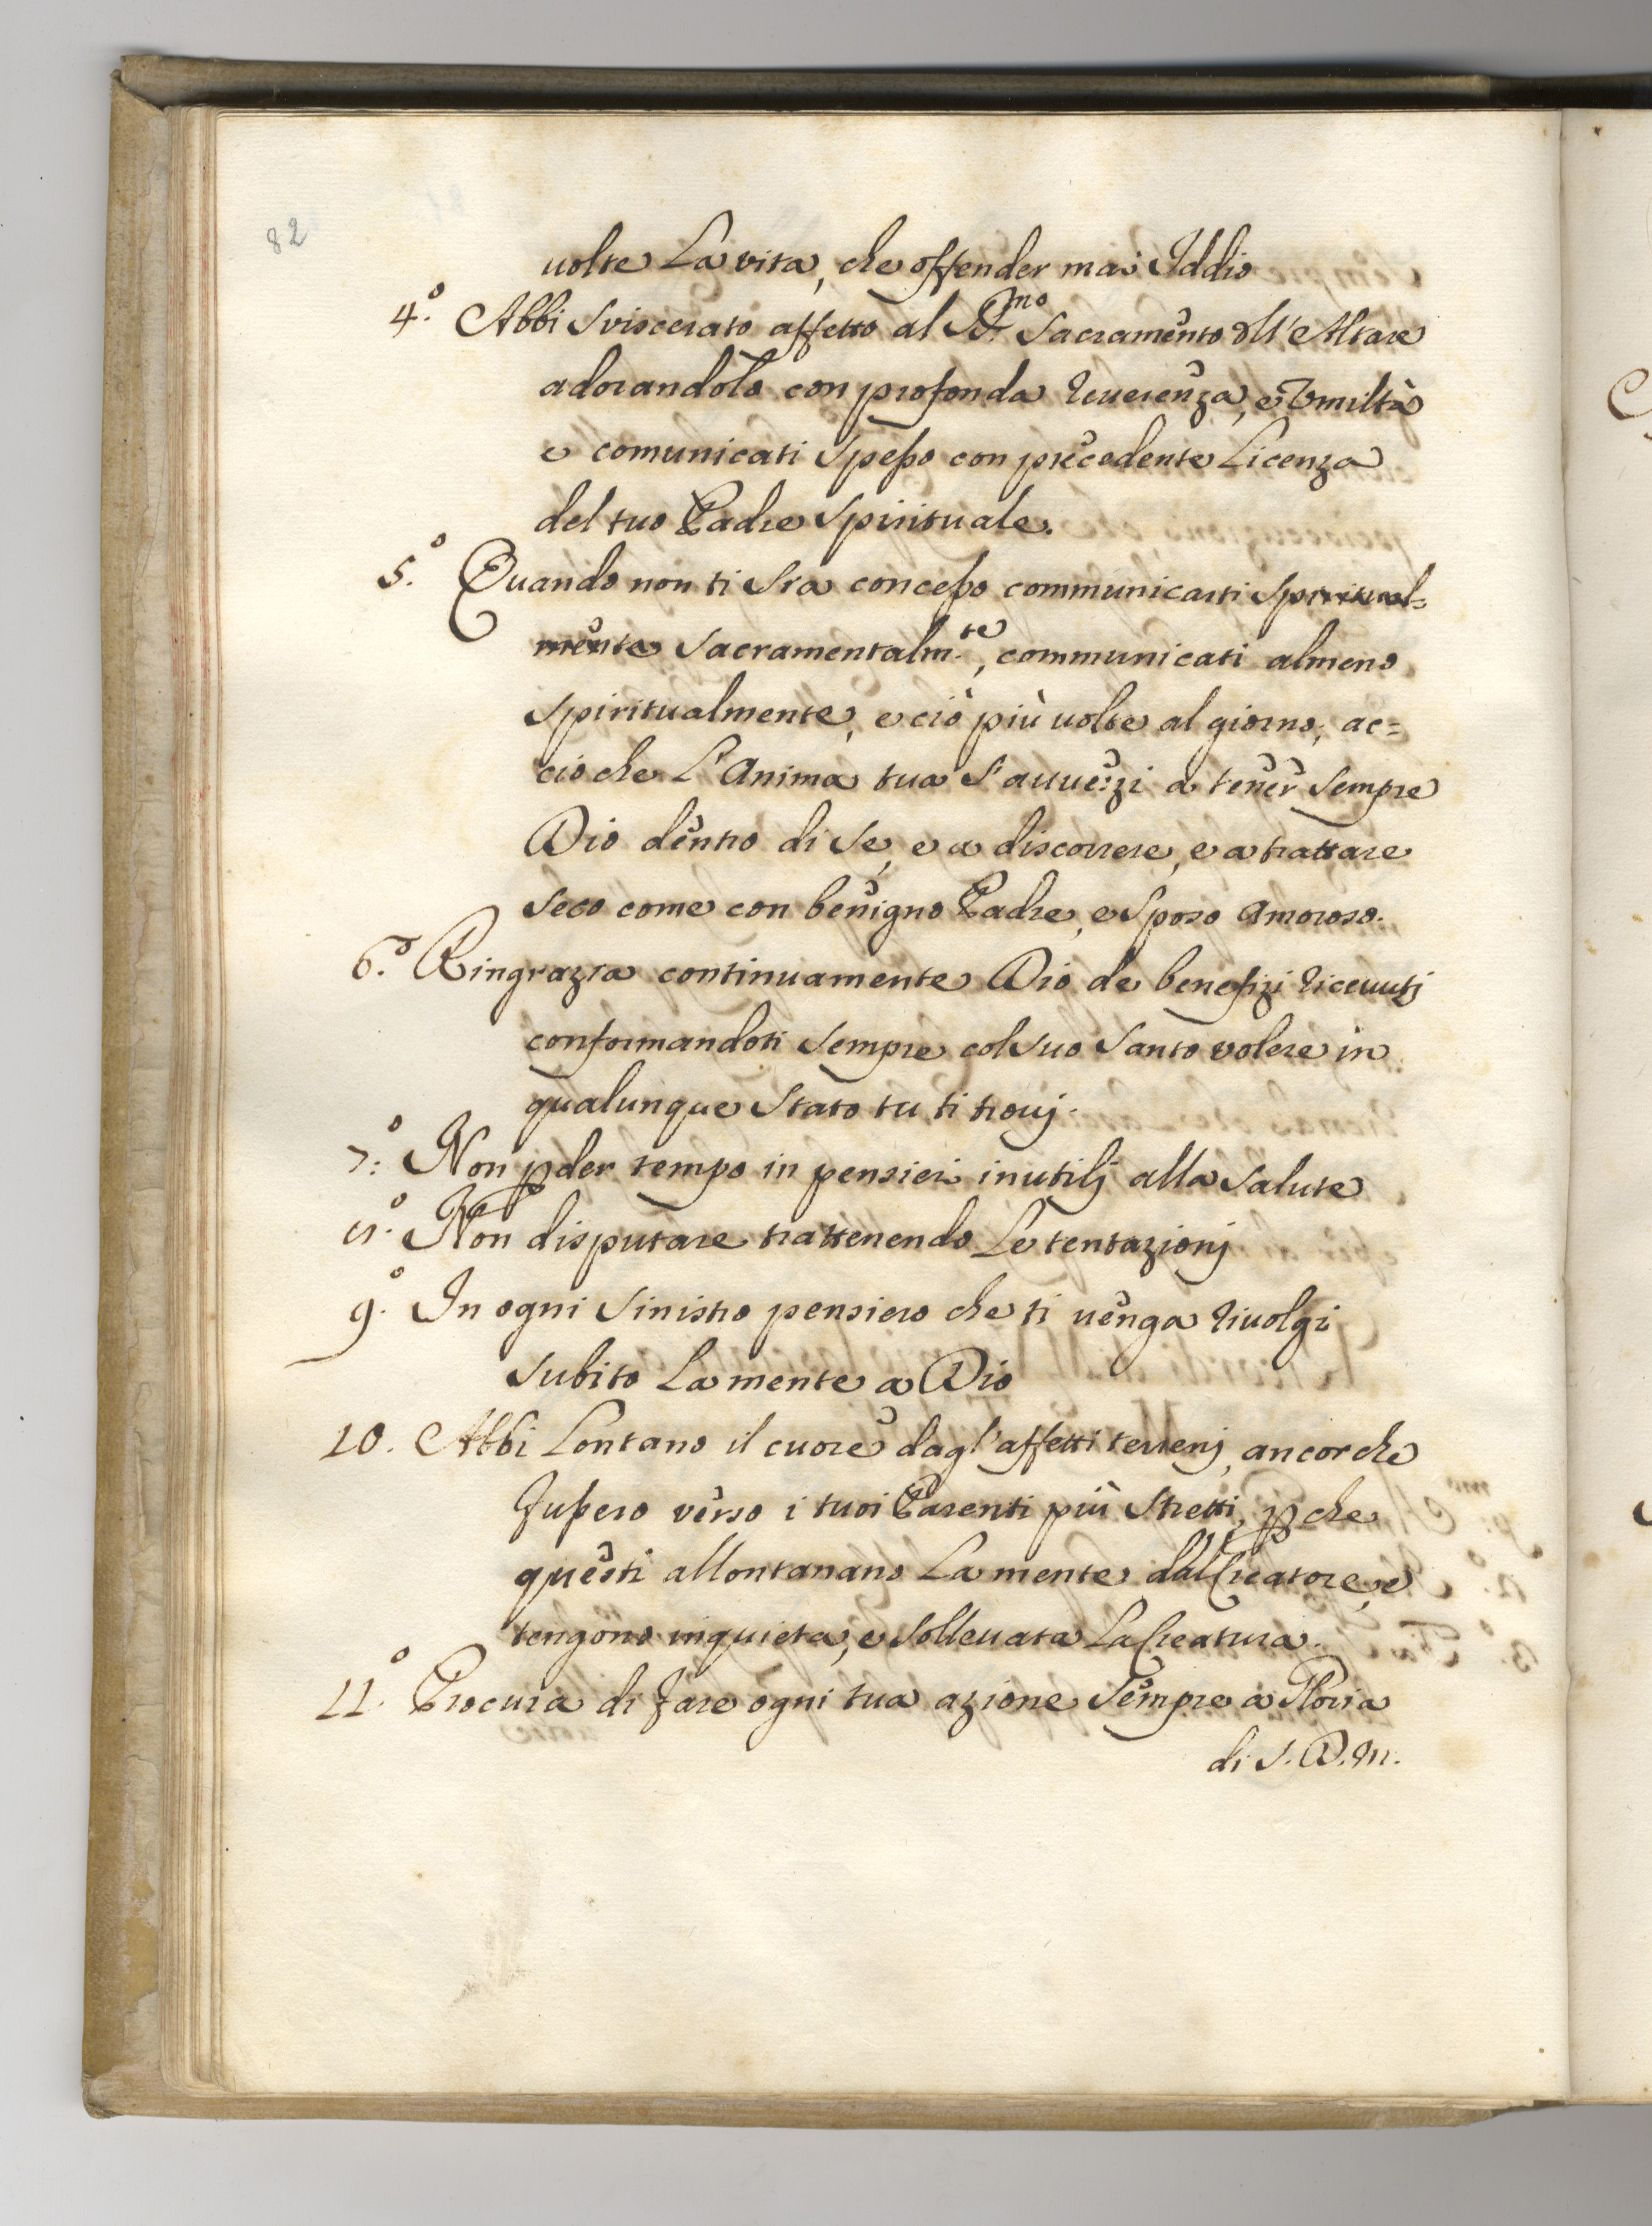 82
uolte La vita, che offender mai Iddio
4.º Abbi Sviscerato affetto al SS.mo Sacramento dll'Altare
adorandolo con profonda reuerenza, e Vmiltà
e comunicati Spesso con precedente Licenza
del tuo Padre Spirituale.
5.º Quando non ti Sia concesso communicarti Spiritual=
mente Sacramentalm.te, communicati almeno
Spiritualmente, e ciò più uolte al giorno, ac=
cio che L'Anima tua S'auuezzi a tener Sempre
Dio dentro di Se, e a discorrere, e a trattare
Seco come con benigno Padre, e Sposo Amoroso.
6.º Ringrazia continuamente Dio de benefizi riceuutj
conformandoti Sempre col Suo Santo volere in
qualunque Stato tu ti trouj.
7.º Non pder tempo in pensieri inutilj alla Salute
8.º Non disputare trattenendo Le tentazionj
9.º In ogni Sinistro pensiero che ti uenga riuolgi
Subito La mente a Dio
10. Abbi Lontano il cuore dagl'affetti terrenj, ancor che
fussero verso i tuoi Parenti più Stretti, pche
questi allontanano La mente dal Creatore, e
tengono inquieta, e Solleuata La Creatura.
11.º Procura di fare ogni tua azione Sempre a Gloria
di S. D. M.